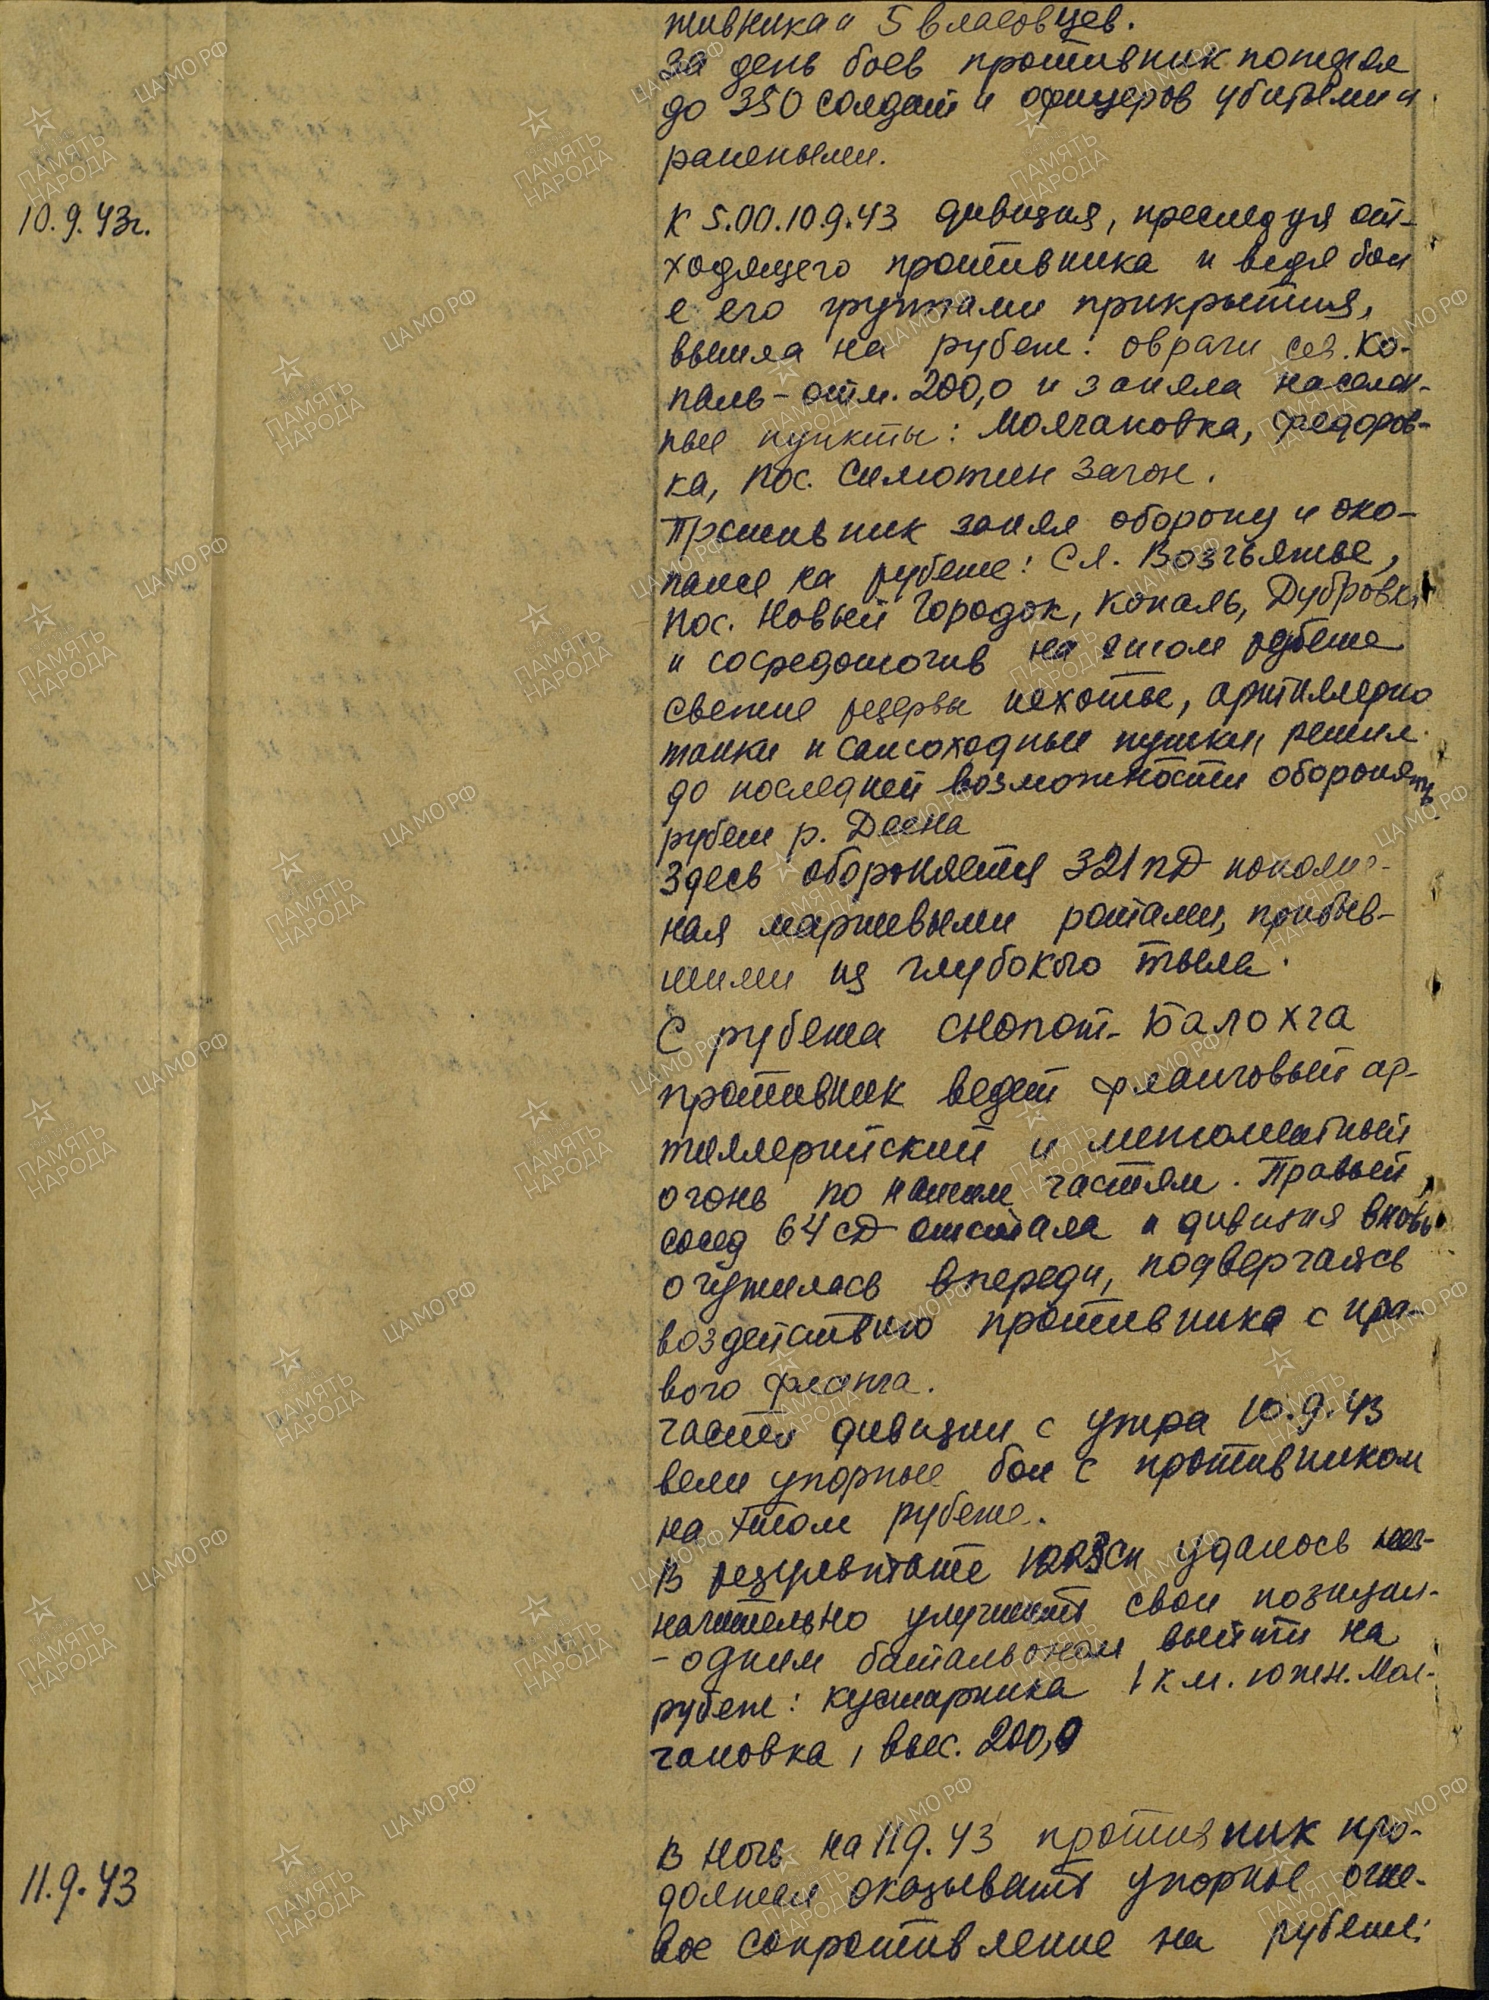 тивника и 5 власовцев.
За день боев противник потерял
до 350 солдат и офицеров убитыми и
ранеными.
10.9.43г.
К 5.00.10.9.43 дивизия, преследуя от-
ходящего противника и ведя бои
с его группами прикрытия,
вышла на рубеж: овраги сев. Ко-
паль - отм. 200,0 и заняла населен-
ные пункты: Молчановка, Федоров-
ка, пос. Симоткин Загон.
Противник занял оборону и око-
пался на рубеже: Сл.
Пос. Новый Городок, Копаль, Дубровка
и сосредоточив на этом рубеже
свежие резервы пехоты, артиллерию
танки и самоходные пушки, решил
до последней возможности оборонять
рубеж р. Десна
Здесь обороняется 321 пД пополне-
ная маршевыми ротами, прибыв-
шими из глубокого тыла.
С рубежа Снопот - Балохга
противник ведет фланговый ар-
тиллерийский и минометный
огонь по нашим частям. Правый
сосед 64 сД отстала и дивизия вновь
очутилась впереди, подвергаясь
воздействию противника с пра-
вого фланга.
Части дивизии с утра 10.9.43
вели упорные бои с противником
на этом рубеже.
В результате 1223сп удалось нез-
начительно улучшить свои позиции-
- одним батальоном выйти на
рубеж: кустарника 1 км. южн. Мол-
чановка, выс. 200,0
11.9.43
В ночь на 11.9.43 противник про-
должал оказывать упорное огне-
вое сопротивление на рубеже: